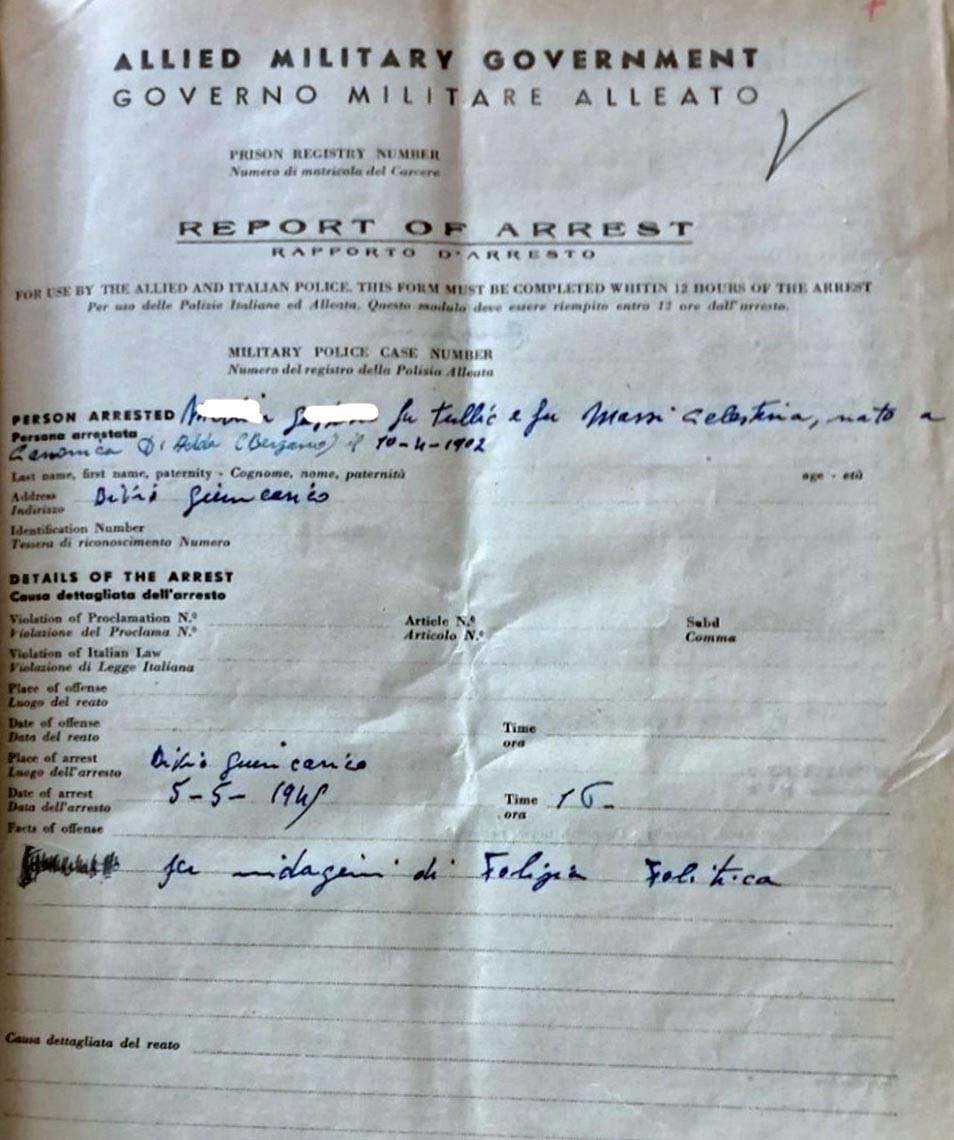 ALLIED MILITARY GOVERNMENT
GOVERNO MILITARE ALLEATO
PRISON REGISTRY NUMBER
Numero di matricola del Carcere
REPORT OF ARREST
RAPPORTO D'ARRESTO
FOR USE BY THE ALLIED AND ITALIAN POLICE. THIS FORM MUST BE COMPLETED WHITIN 12 HOURS OF THE ARREST
Per uso delle Polizie Italiane ed Alleata. Questo modulo deve essere riempito entro 12 ore dall'arresto.
MILITARY POLICE CASE NUMBER
Numero del registro della Polizia Alleata
PERSON ARRESTED fu Tullio e fu Massi Celestina, nato a
Persona arrestata
Canonica D'Adda (Bergamo) il 10-4-1902
Last name, first name, paternity - Cognome, nome, paternità age - età
Address
Indirizzo
Identification Number
Tessera di riconoscimento Numero
DETAILS OF THE ARREST
Causa dettagliata dell'arresto
Violation of Proclamation N.º Article N.º Subd
Violazione del Proclama N.º Articolo N.º Comma
Violation of Italian Law
Violazione di Legge Italiana
Place of offense
Luogo del reato
Date of offense Time
Data del reato ora
Place of arrest
Luogo dell'arresto
Date of arrest 5-5-1945 Time 16-
Data dell'arresto ora
Facts of offense
indagini di Polizia Politica
Causa dettagliata del reato